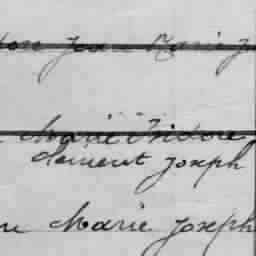 Marie J
Marie Isidore
clement joseph
Marie Joseph